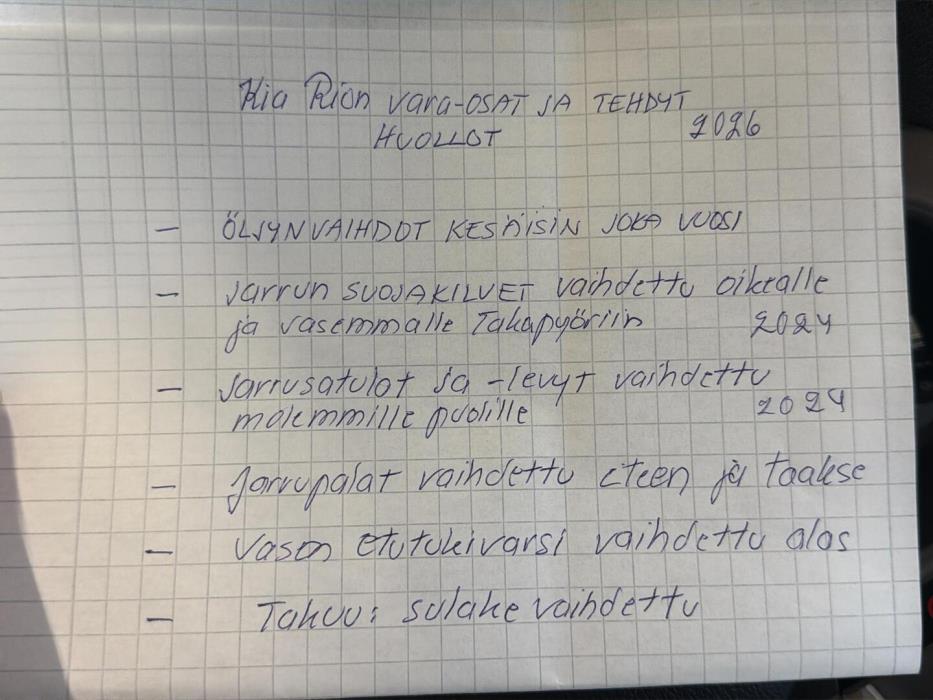 Kia Rion vara-OSAT JA TEHDYT
HUOLLOT 2026
– ÖLJYNVAIHDOT KESÄISIN JOKA VUOSI
– Jarrun SUOJAKILVET vaihdettu oikealle
ja vasemmalle Takapyöriin 2024
– Jarrusatulat ja -levyt vaihdettu
molemmille puolille 2024
– Jarrupalat vaihdettu eteen ja taakse
– Vasen etutukivarsi vaihdettu alas
– Takuu: sulake vaihdettu